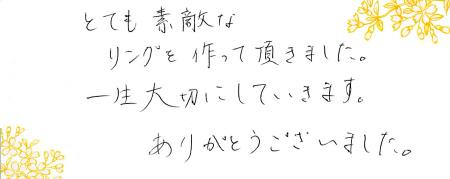 とても素敵な
リングを作って頂きました。
一生大切にしていきます。
ありがとうございました。